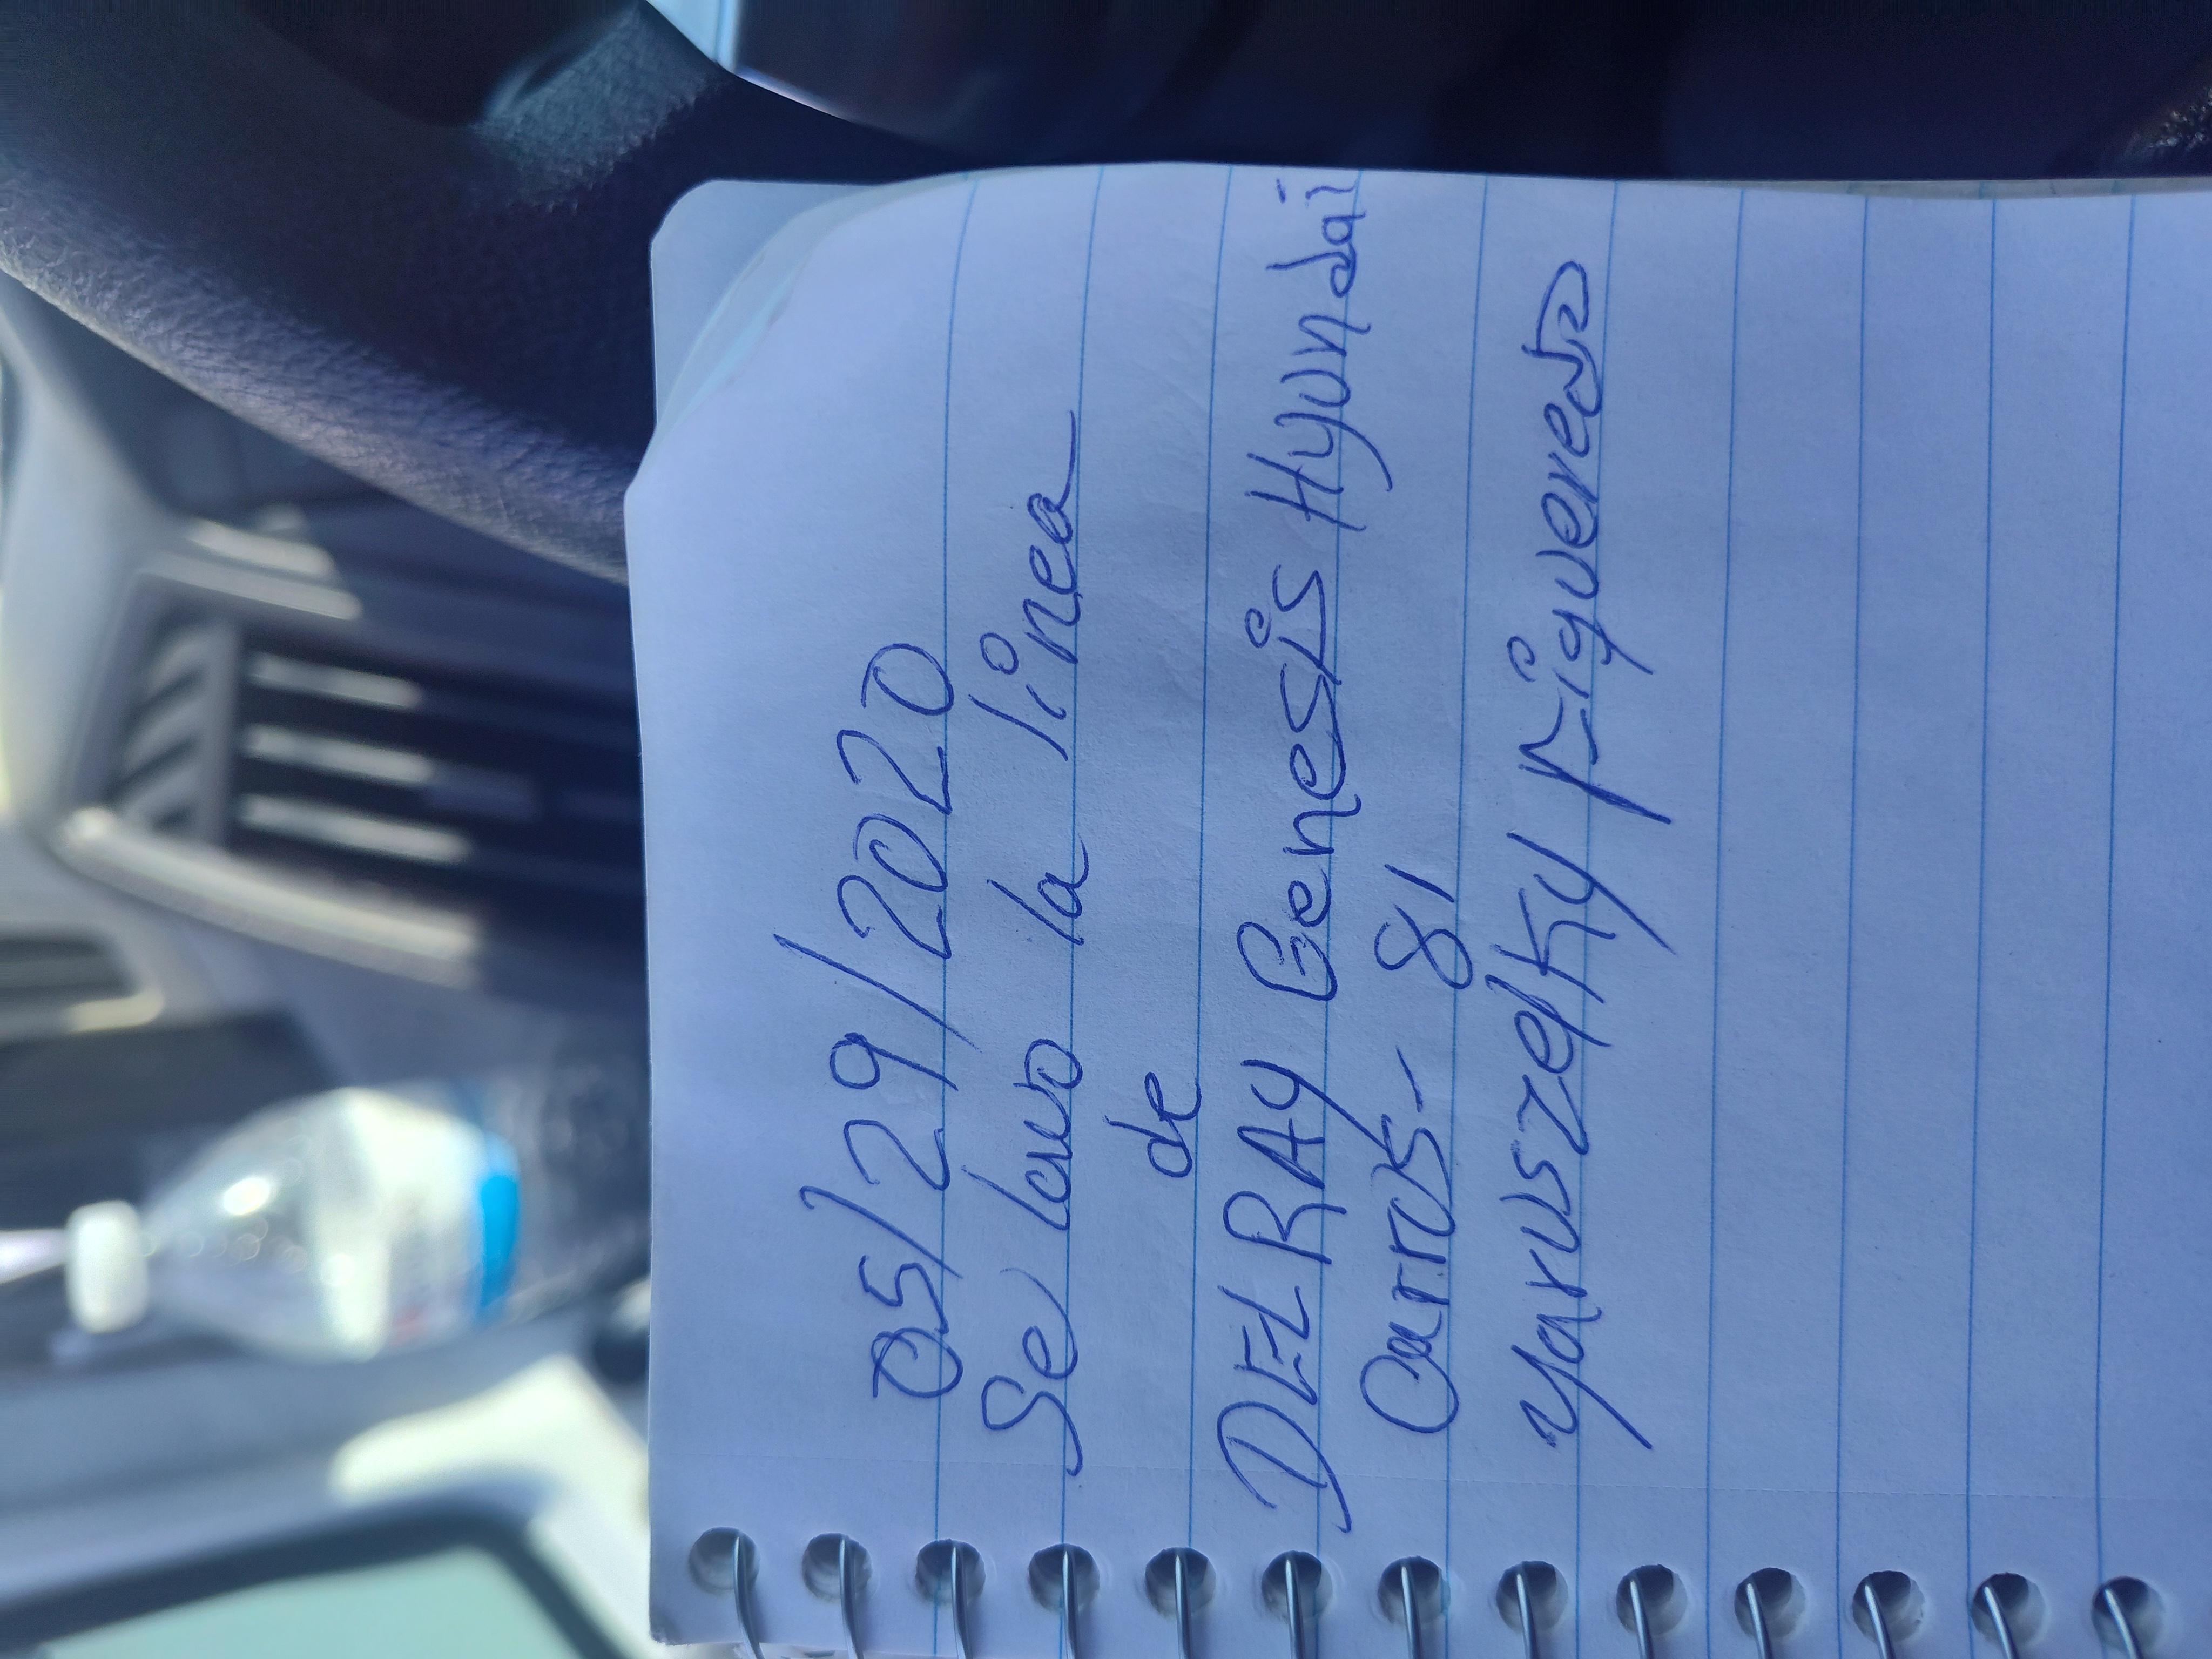 05/29/2020
Se lavo la linea
de
DELRAY Genesis Hyundai
Carros- 81
Yaruszelky Figueredo